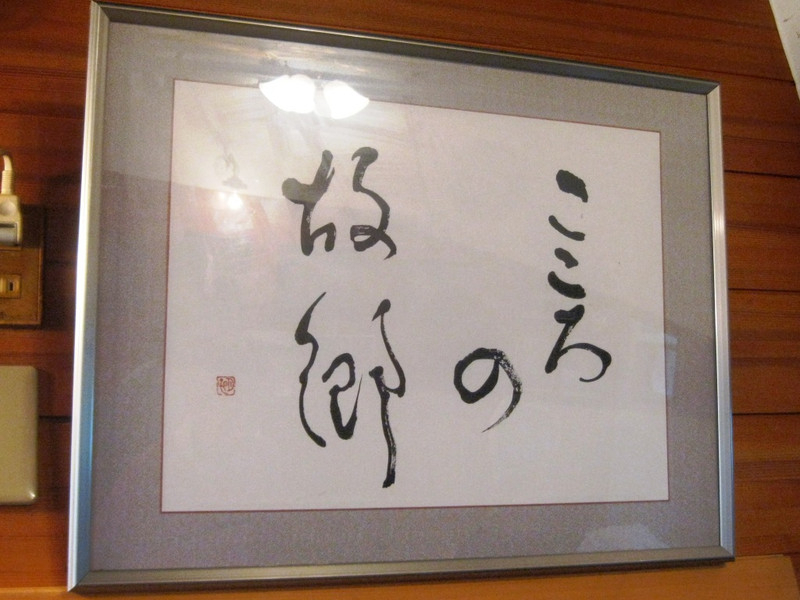 こころ
の
故郷